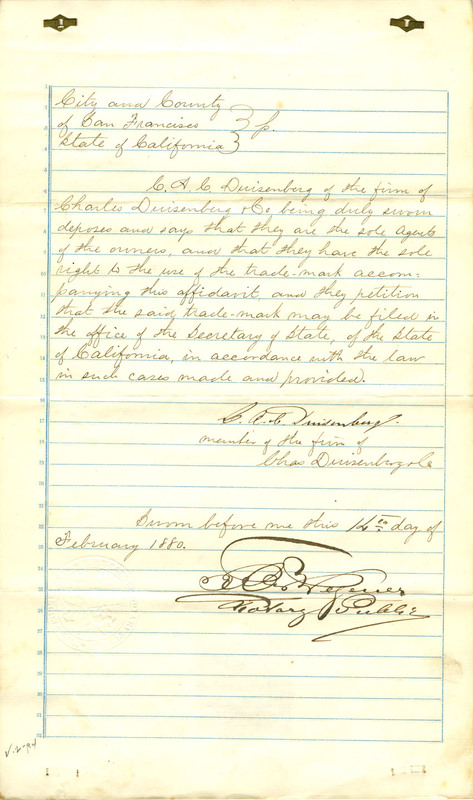 City and County
of San Francisco } ss.
State of California }
C. A. C. Duisenberg of the firm of
Charles Duisenberg & Co being duly sworn
deposes and says that they are the sole Agents
of the owners, and that they have the sole
right to the use of the trade-mark accom=
panying this affidavit, and they petition
that the said trade-mark may be filed in
the office of the Secretary of State, of the State
of California, in accordance with the law
in such cases made and provided.
C. A. C. Duisenberg.
member of the firm of
Chas Duisenberg & Co
Sworn before me this 14th day of
February 1880.
Notary Public